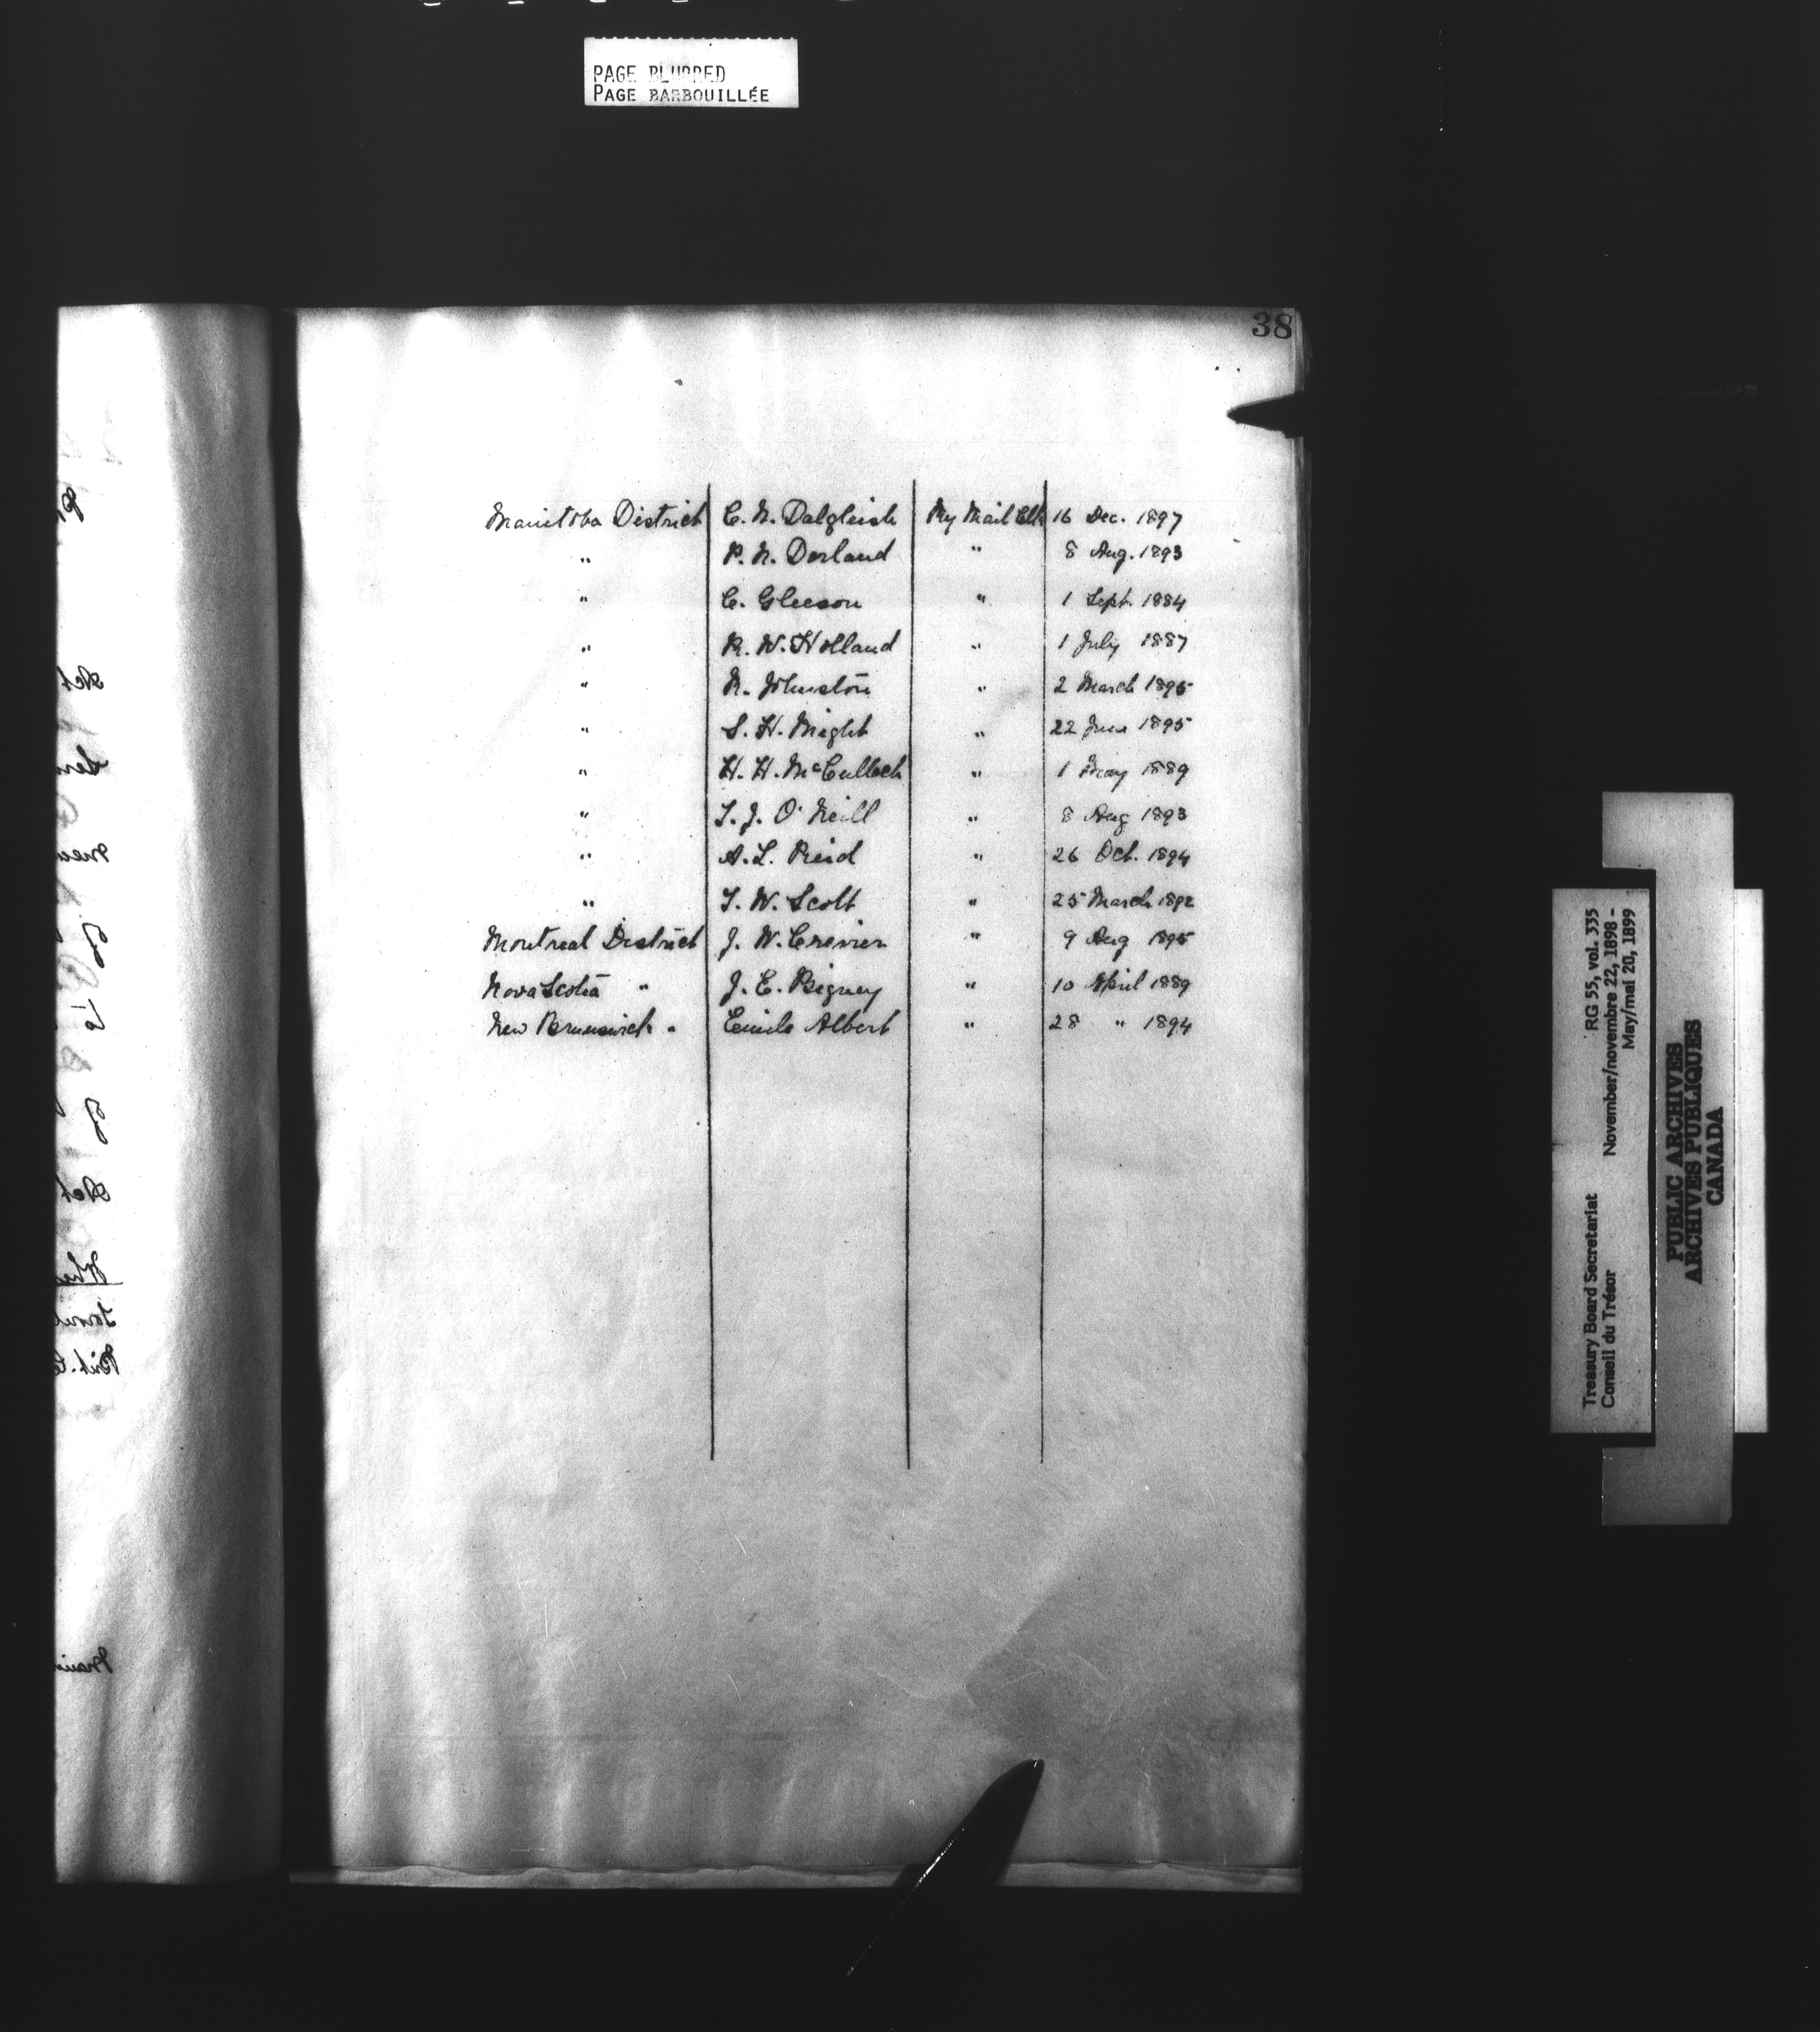 PAGE BLURRED
PAGE BARBOUILLÉE
38
Manitoba District C. N. Dalgleish Ry Mail Clk 16 Dec. 1897
" P. N. Dorland " 8 Aug. 1893
" C. Gleeson " 1 Sept. 1884
" R. W. Holland " 1 July 1887
" N. Johnston " 2 March 1895
" S. H. Might " 22 June 1895
" H. H. McCulloch " 1 May 1889
" T. J. O'Neill " 8 Aug 1893
" A. L. Reid " 26 Oct. 1894
" T. W. Scott " 25 March 1892
Montreal District J. W. Crevier " 9 Aug 1895
Nova Scotia " J. E. Bigney " 10 April 1889
New Brunswick " Emile Albert " 28 " 1894
Treasury Board Secretariat RG 55, vol. 335
Conseil du Trésor November/novembre 22, 1898 -
May/mai 20, 1899
PUBLIC ARCHIVES
ARCHIVES PUBLIQUES
CANADA